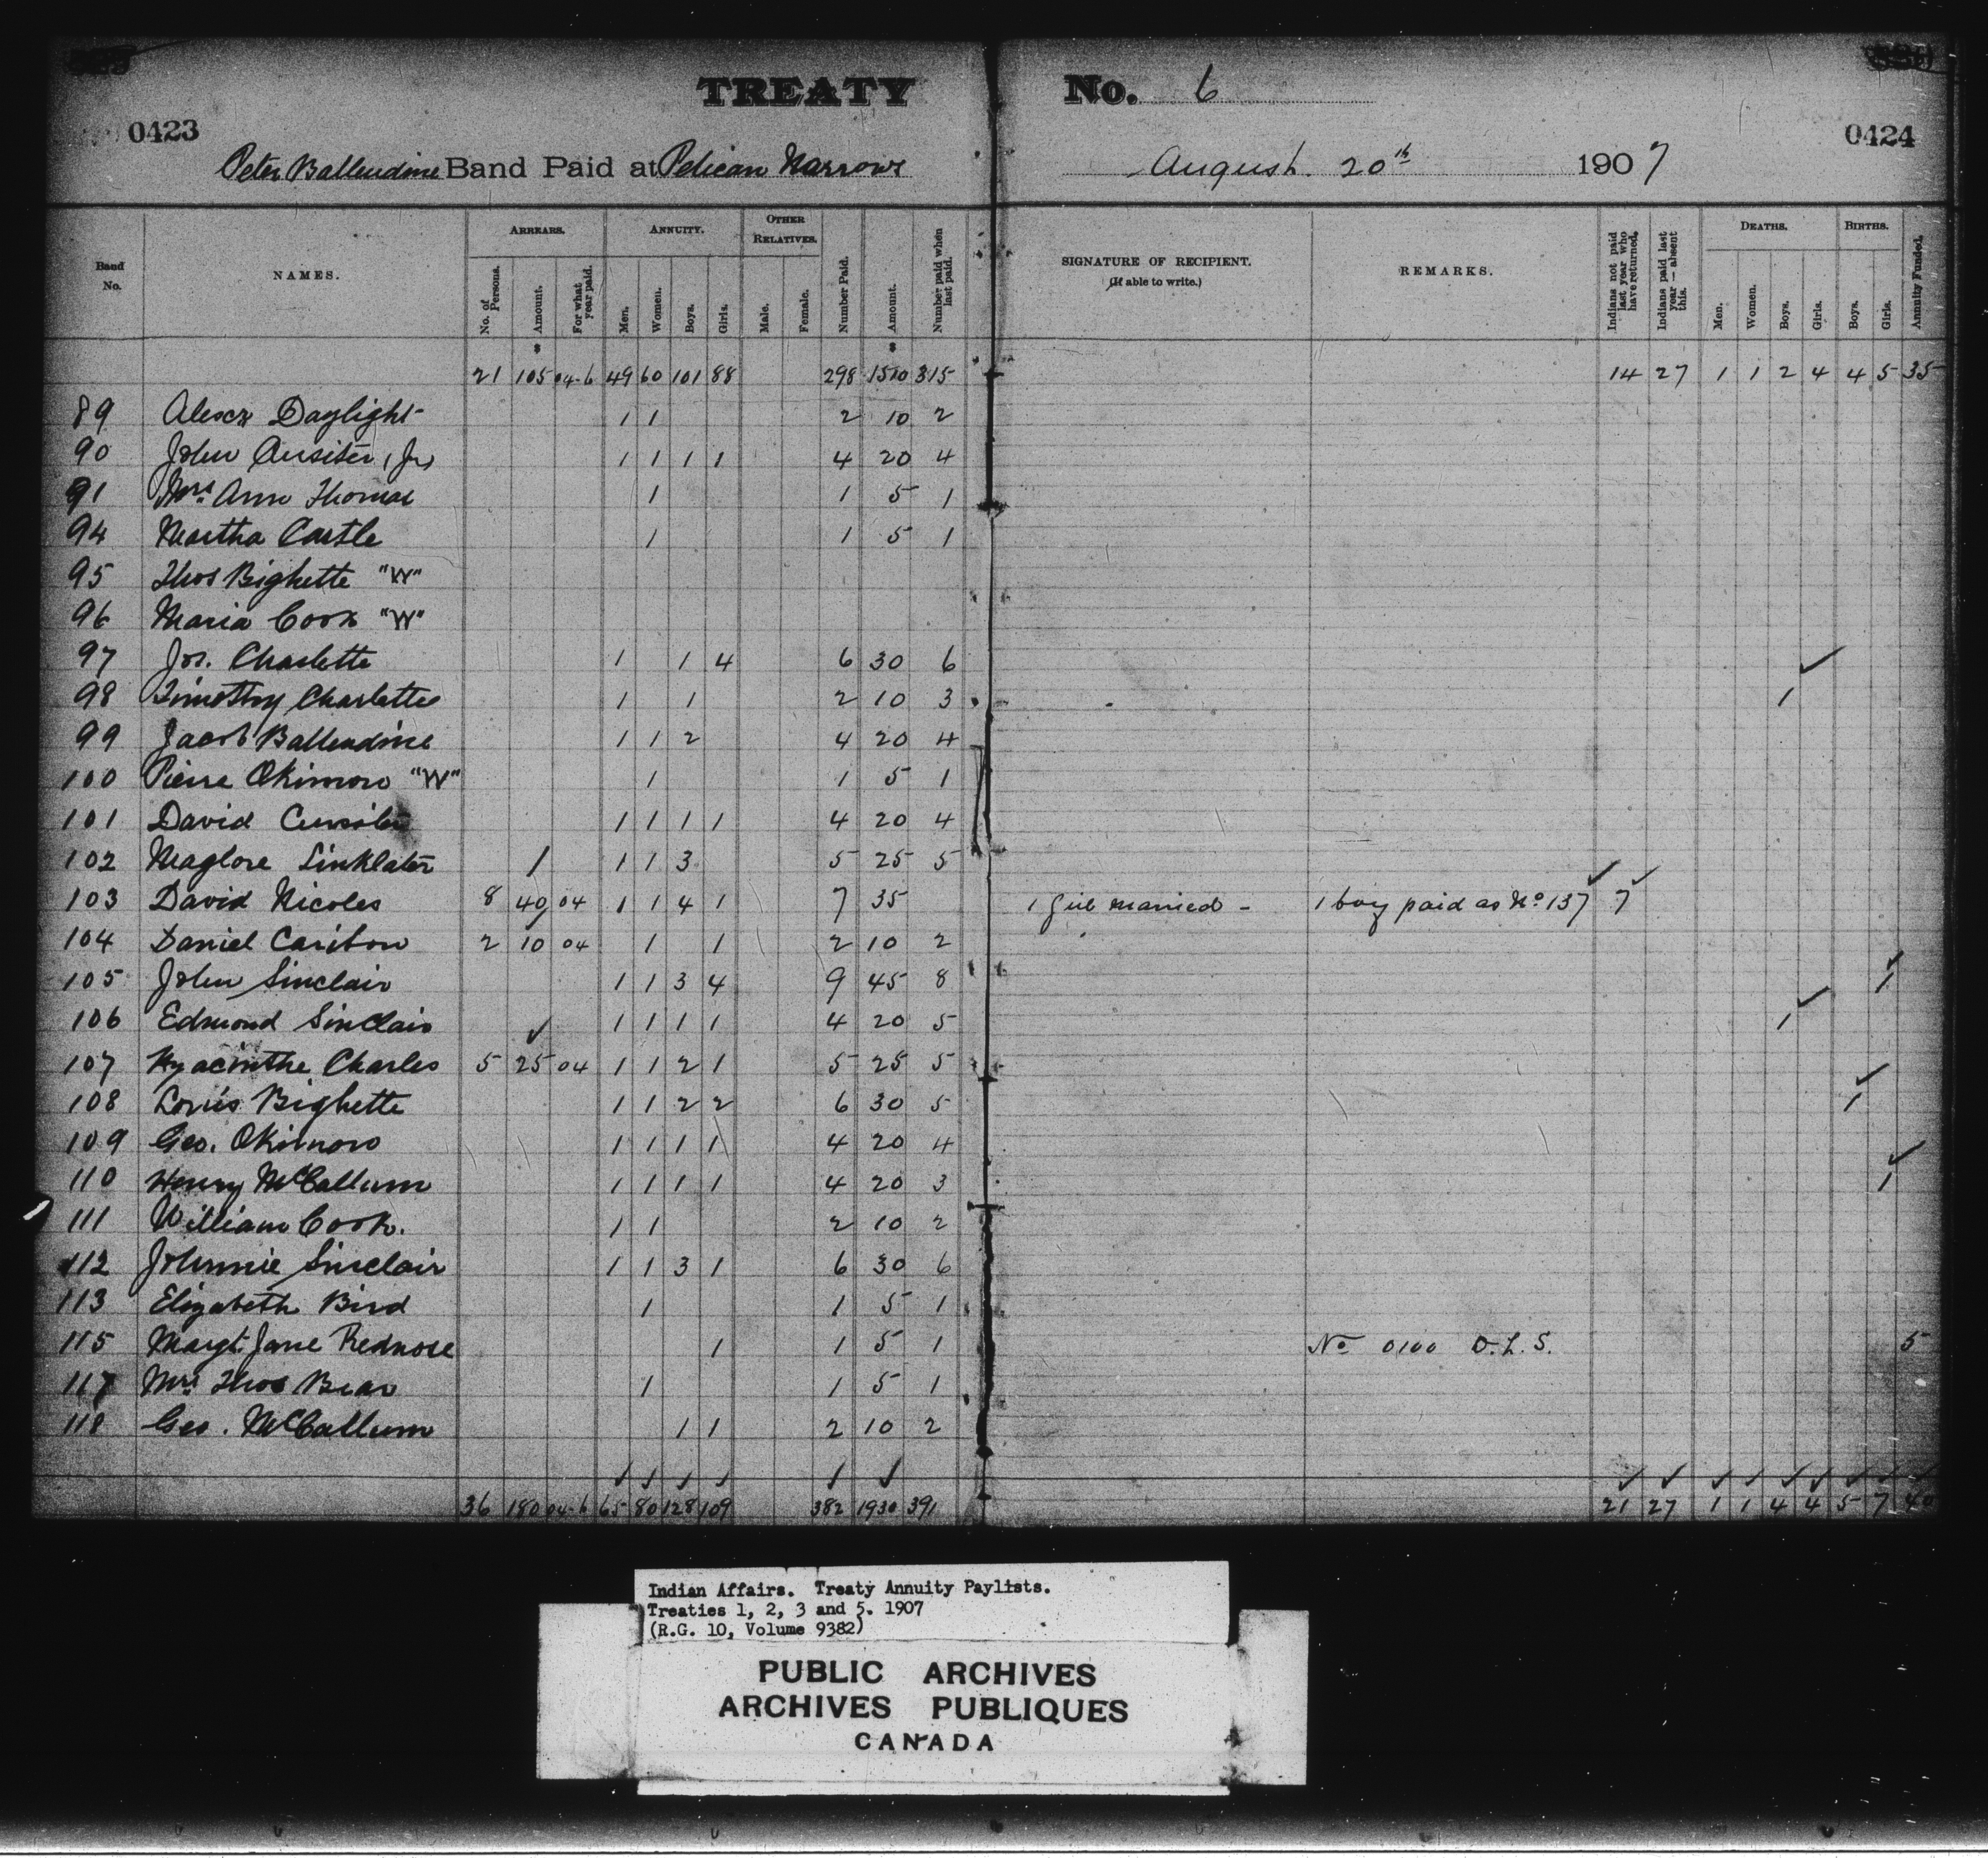 TREATY No. 6
0423 0424
Peter Ballendine Band Paid at Pelican Narrows August. 20th 1907
Band No. NAMES. ARREARS. No. of Persons. Amount. For what year paid. ANNUITY. Men. Women. Boys. Girls. OTHER RELATIVES. Male. Female. Number Paid. Amount. Number paid when last paid. SIGNATURE OF RECIPIENT. (If able to write.) REMARKS. Indians not paid last year who have returned. Indians paid last year — absent this. DEATHS. Men. Women. Boys. Girls. BIRTHS. Boys. Girls. Annuity Funded.
$ $
21 105 04-6 49 60 101 88 298 1510 315 14 27 1 1 2 4 4 5 35
89 Alexr Daylight 1 1 2 10 2
90 John Cursiter (Jr) 1 1 1 1 4 20 4
91 Mrs. Ann Thomas 1 1 5 1
94 Martha Castle 1 1 5 1
95 Thos Bighette "W"
96 Maria Cook "W"
97 Jos. Charlette 1 1 4 6 30 6 ✓
98 Timothy Charlette 1 1 2 10 3 1
99 Jacob Ballendine 1 1 2 4 20 4
100 Pierre Okimow "W" 1 1 5 1
101 David Cursiter 1 1 1 1 4 20 4
102 Maglore Linklater 1 1 3 5 25 5
103 David Nicoles 8 40 04 1 1 4 1 7 35 1 girl married - 1 boy paid as No 137 7
104 Daniel Caribou 2 10 04 1 1 2 10 2
105 John Sinclair 1 1 3 4 9 45 8 1
106 Edmond Sinclair 1 1 1 1 4 20 5 1
107 Hyacinthe Charles 5 25 04 1 1 2 1 5 25 5
108 Louis Bighette 1 1 2 2 6 30 5 1
109 Geo. Okimow 1 1 1 1 4 20 4
110 Henry McCallum 1 1 1 1 4 20 3 1
111 William Cook. 1 1 2 10 2
112 Johnnie Sinclair 1 1 3 1 6 30 6
113 Elizabeth Bird 1 1 5 1
115 Margt. Jane Rednose 1 1 5 1 No 0100 D.L.S. 5
117 Mrs Thos Bear 1 1 5 1
118 Geo. McCallum 1 1 2 10 2
36 180 04-6 65 80 128 109 382 1930 391 21 27 1 1 4 4 5 7 40
Indian Affairs. Treaty Annuity Paylists.
Treaties 1, 2, 3 and 5. 1907
(R.G. 10, Volume 9382)
PUBLIC ARCHIVES
ARCHIVES PUBLIQUES
CANADA